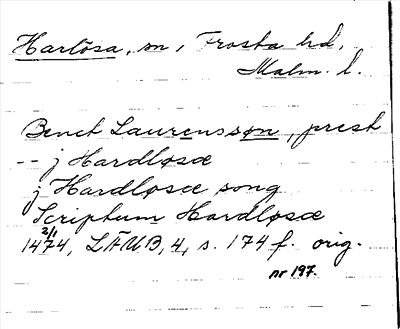 Harlösa, sn, Frosta hd,
Malm. l.
Benct Laurensson, prest
-- j Hardløsæ
j Hardløsæ song
Scriptum Hardløsæ
2/1
1474, LÄUB, 4, s. 174 f. orig.
nr 197.